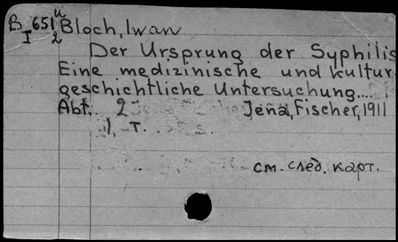 B 651 u Bloch, Iwan
I 2
Der Ursprung der Syphilis
Eine medizinische und Kultur
geschichtliche Untersuchung....
Abt. 2 Jena, Fischer, 1911
1, т.
см. след. карт.